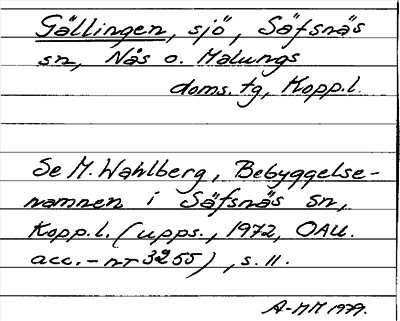 Gällingen, sjö, Säfsnäs
sn, Nås o. Malungs
doms. tg, Kopp.l.
Se M. Wahlberg, Bebyggelse-
namnen i Säfsnäs sn,
Kopp.l. (upps., 1972, OAU.
acc.-nr 3255), s. 11.
A-MM 1979.